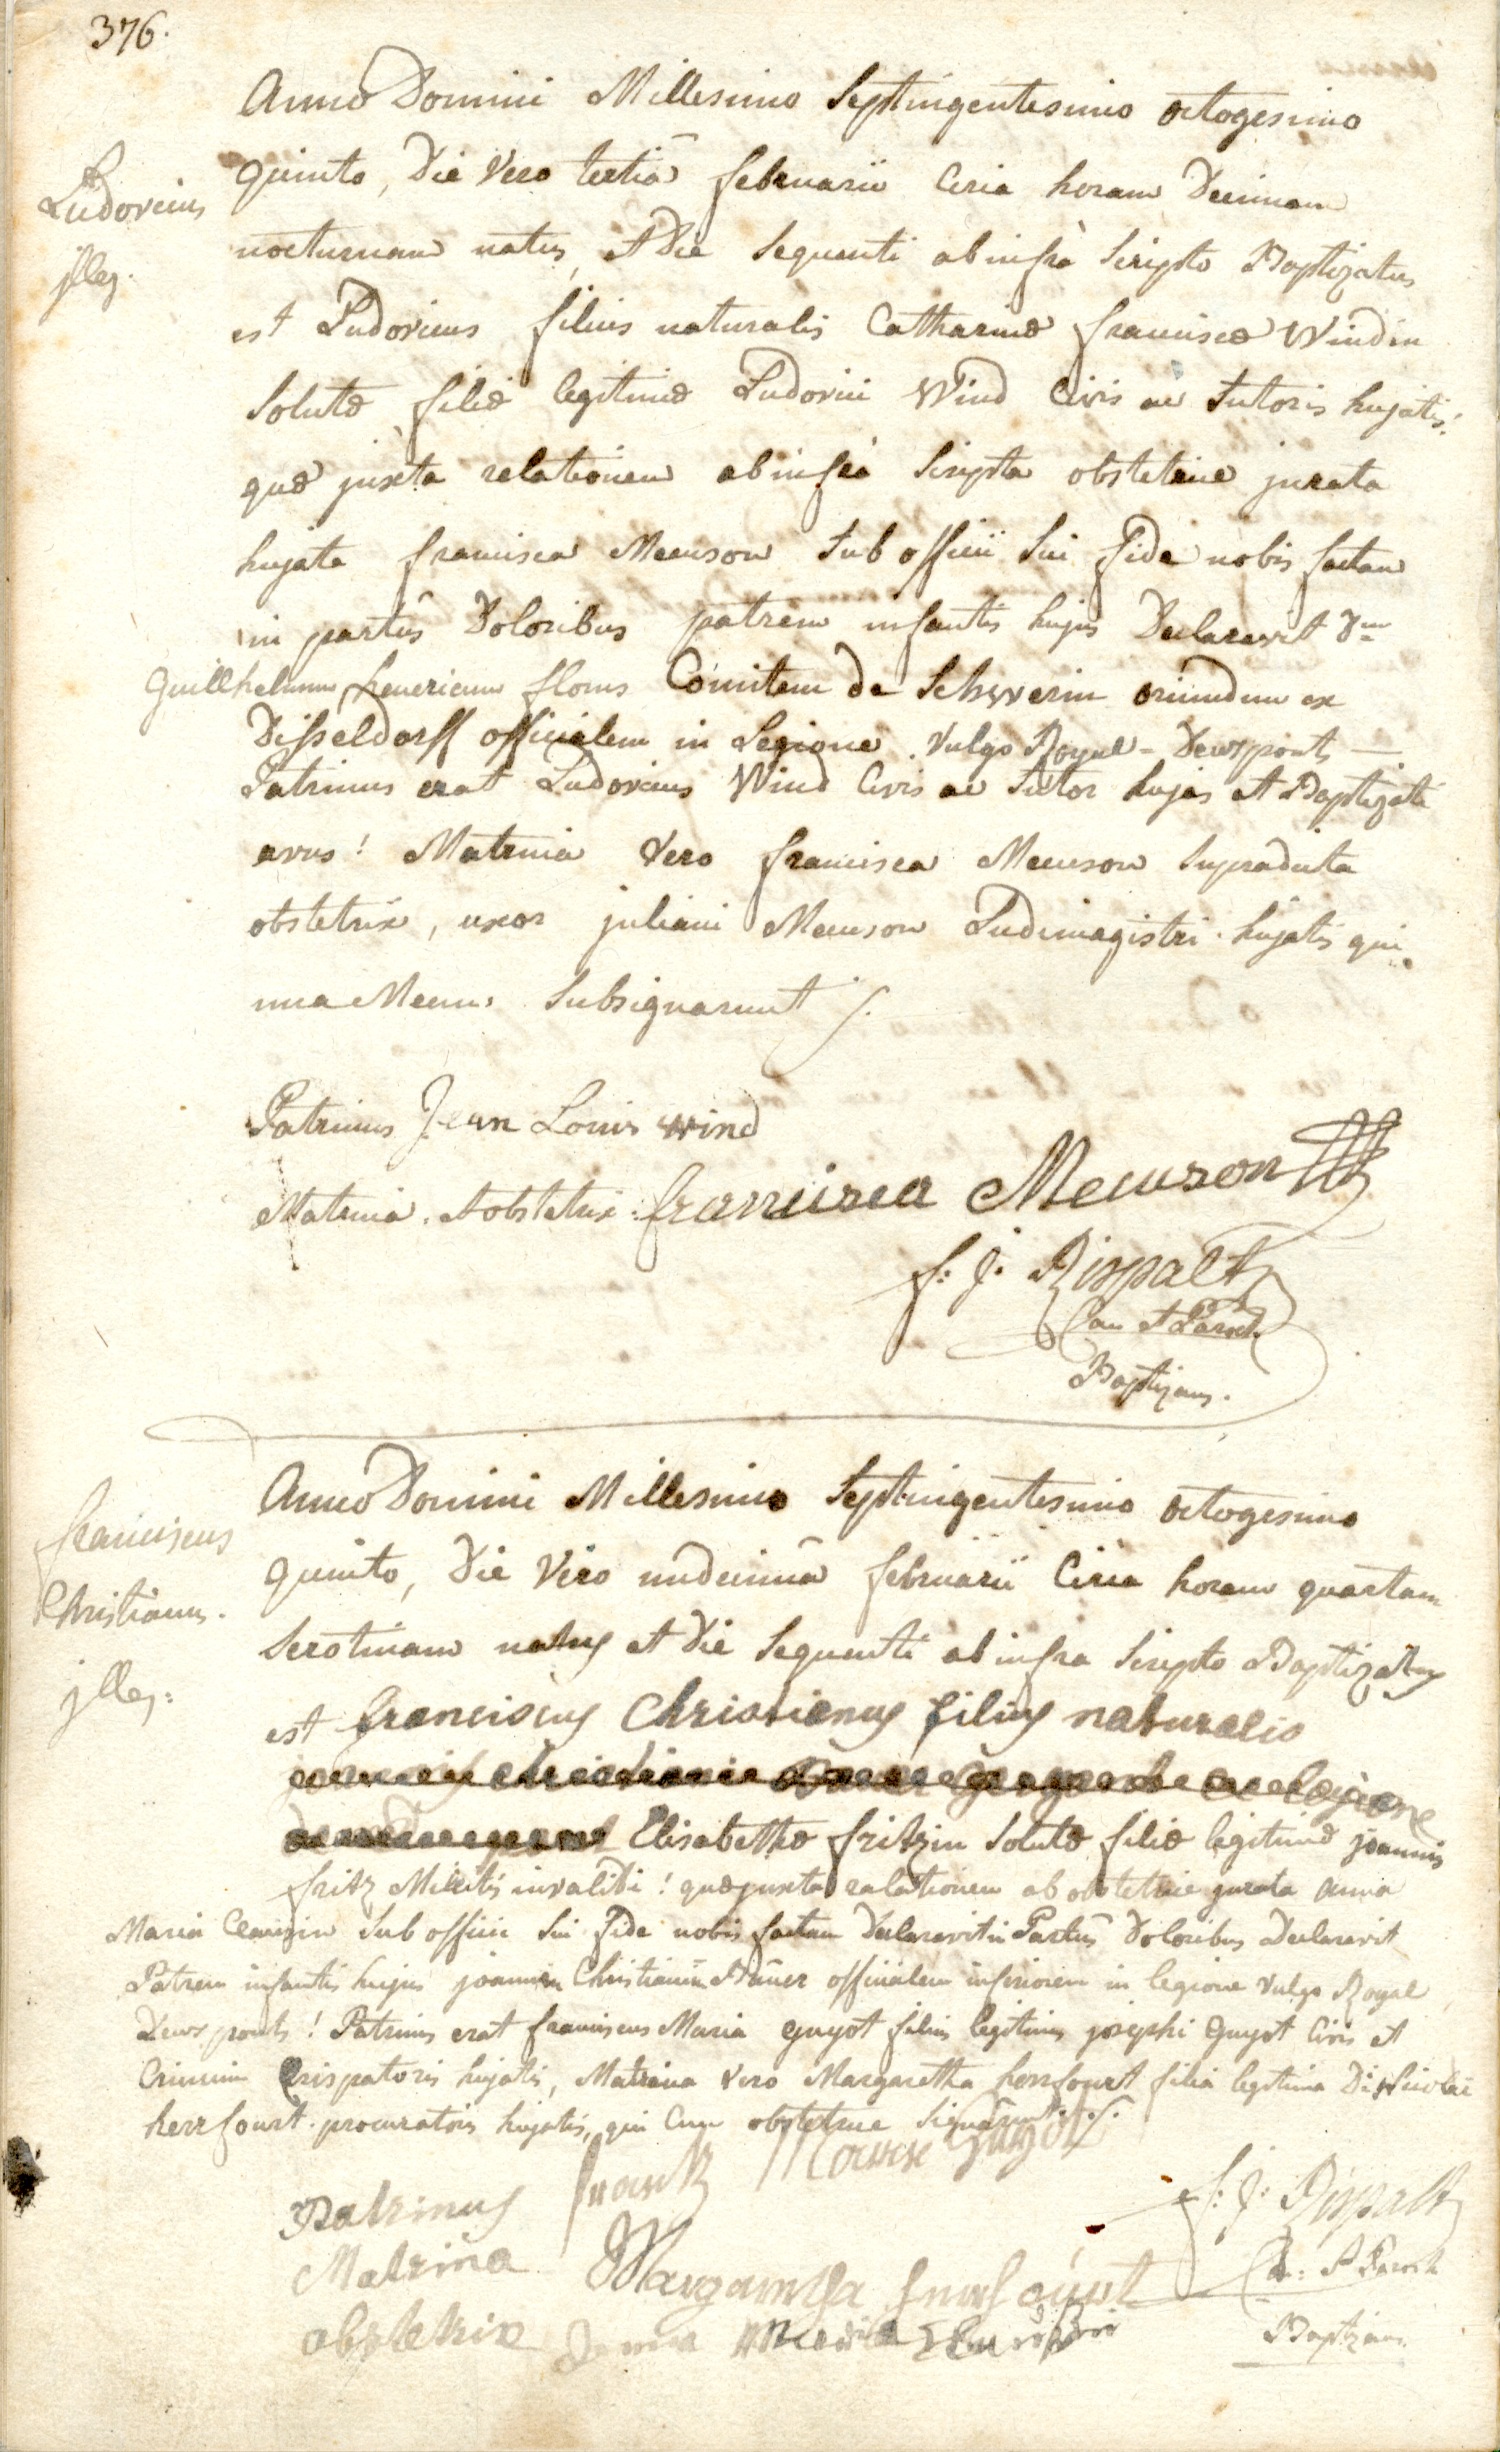 376.
Anno Domini Millesimo Septingentesimo octogesimo
Ludovicus
illeg.
quinto, Die Vero tertia februarii Circa horam Decimam
nocturnam natus, et Die Sequenti ab infrà Scripto Baptizatus
est Ludovicus filius naturalis Catharinæ franciscæ Windin
Solutæ, filiæ legitimæ Ludovici Wind Civis ac Sutoris hujatis:
quæ juxta relationem ab infrà Scripta obstetrice jurata
hujate francisca Meurson Sub officii Sui fide nobis factam
in partûs Doloribus patrem infantis hujus Declaravit Dnum
Guillhelmum henericum florus Comitem de Schwerin oriundum ex
Disseldorff officialem in Legione vulgo Royal-Deuxponts —
Patrinus erat Ludovicus Wind Civis ac Sutor hujas et Baptizati
avus! Matrina Vero francisca Meurson Supradicta
obstetrix, uxor juliani Meurson Ludimagistri hujatis qui
una Mecum Subsignarunt ./.
Patrinus Jean Louis wind
Matrina et obstetrix: francisca Meurson
f: J: Rispalt
Can et Paroch.
Baptizans.
Anno Domini Millesimo Septingentesimo octogesimo
franciscus
Christianus.
illeg:
quinto, Die Vero undecimâ februarii Circa horam quartam
Serotinam natus et Die Sequenti ab infra Scripto Baptizatus
est franciscus Christianus filius naturalis
Elisabethæ fritzin Solutæ filiæ legitimæ joannis
fritz Militis invalidi! quæ juxta relationem ab obstetrice jurata Anna
Maria Sub officii Sui fide nobis factam Declaravit in Partûs Doloribus Declaravit
Patrem infantis hujus joannem Christianum Bauer officialem inferiorem in legione vulgo Royal
Deux ponts! Patrinus erat franciscus Maria guyot filius legitimus josephi guyot Civis et
Crinium Crispatoris hujatis, Matrina vero Margaretha herrfourt filia legitima Di Nicolai
herrfourt procuratoris hujatis, qui Cum obstetrice Signârunt ./.
Patrinus frantz Marie guyot
f: J: Rispalt
Matrina Margaretha herrfourt
Can: et Paroch
obstetrix Maria
Baptizans.